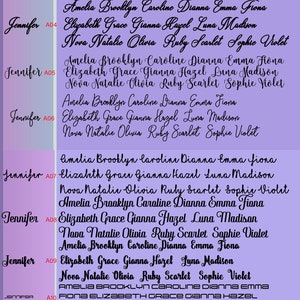 Amelia Brooklyn Caroline Dianna Emma Fiona
Jennifer A04 Elizabeth Grace Gianna Hazel Luna Madison
Nova Natalie Olivia Ruby Scarlet Sophie Violet
Amelia Brooklyn Caroline Dianna Emma Fiona
Jennifer A05 Elizabeth Grace Gianna Hazel Luna Madison
Nova Natalie Olivia Ruby Scarlet Sophie Violet
Amelia Brooklyn Caroline Dianna Emma Fiona
Jennifer A06 Elizabeth Grace Gianna Hazel Luna Madison
Nova Natalie Olivia Ruby Scarlet Sophie Violet
Amelia Brooklyn Caroline Dianna Emma Fiona
Jennifer A07 Elizabeth Grace Gianna Hazel Luna Madison
Nova Natalie Olivia Ruby Scarlet Sophie Violet
Amelia Brooklyn Caroline Dianna Emma Fiona
Jennifer A08 Elizabeth Grace Gianna Hazel Luna Madison
Nova Natalie Olivia Ruby Scarlet Sophie Violet
Amelia Brooklyn Caroline Dianna Emma Fiona
Jennifer A09 Elizabeth Grace Gianna Hazel Luna Madison
Nova Natalie Olivia Ruby Scarlet Sophie Violet
AMELIA BROOKLYN CAROLINE DIANNA EMMA
JENNIFER A10 FIONA ELIZABETH GRACE GIANNA HAZEL